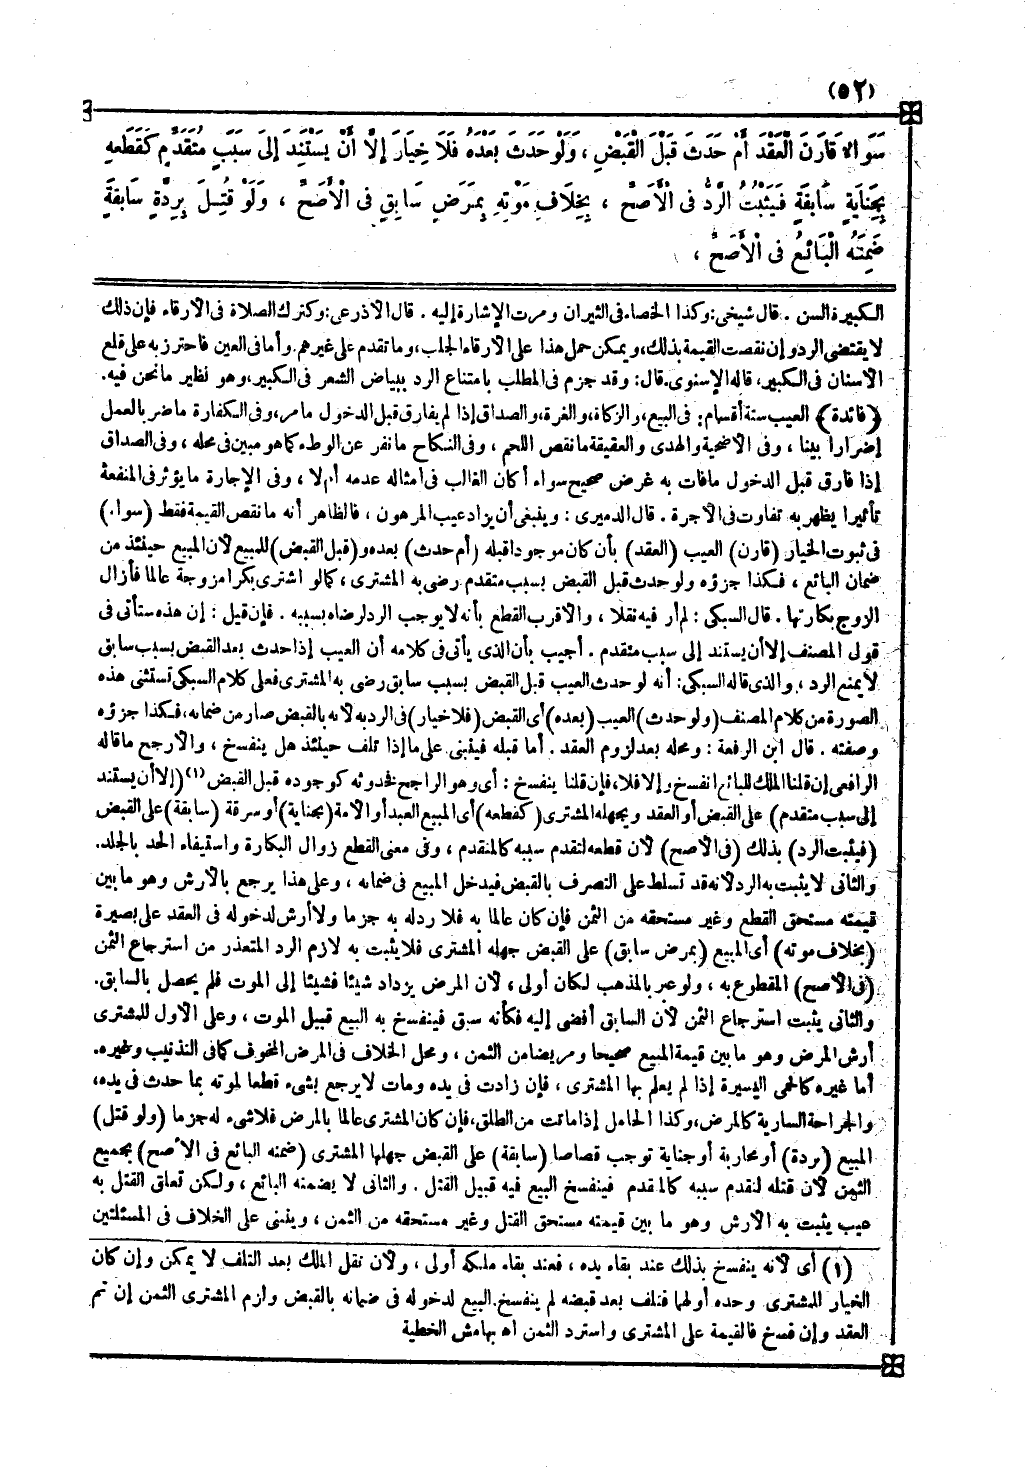 (٥٢)
سَوَاءٌ قَارَنَ الْعَقْدَ أَمْ حَدَثَ قَبْلَ الْقَبْضِ ، وَلَوْ حَدَثَ بَعْدَهُ فَلَا خِيَارَ إِلَّا أَنْ يَسْتَنِدَ إِلَى سَبَبٍ مُتَقَدِّمٍ كَقَطْعِهِ
بِجِنَايَةٍ سَابِقَةٍ فَيَثْبُتُ الرَّدُّ فِى الْأَصَحِّ ، بِخِلَافِ مَوْتِهِ بِمَرَضٍ سَابِقٍ فِى الْأَصَحِّ ، وَلَوْ قُتِلَ بِرِدَّةٍ سَابِقَةٍ
ضَمِنَهُ الْبَائِعُ فِى الْأَصَحِّ ،
الكبيرة السن . قال شيخى: وكذا الخصاء فى الثيران ومرت الإشارة إليه . قال الأذرعى: وكترك الصلاة فى الأرقاء فإن ذلك
لا يقتضى الرد وإن نقصت القيمة بذلك، ويمكن حمل هذا على الأرقاء الجلب، وما تقدم على غيرهم. وأما فى العين فاحترز به على قلع
الأسنان فى الكبير، قاله الإسنوى. قال: وقد جزم فى المطلب بامتناع الرد ببياض الشعر فى الكبير، وهو نظير ما نحن فيه.
﴿فائدة﴾ العيب ستة أقسام: فى البيع، والزكاة، والغرة، والصداق إذا لم يفارق قبل الدخول ما مر، وفى الكفارة ما ضر بالعمل
إضرارا بينا ، وفى الأضحية والهدى والعقيقة ما نقص اللحم ، وفى النكاح ما نفر عن الوطء كما هو مبين فى محله ، وفى الصداق
إذا فارق قبل الدخول ما فات به غرض صحيح سواء أكان الغالب فى أمثاله عدمه أم لا ، وفى الإجارة ما يؤثر فى المنفعة
تأثيرا يظهر به تفاوت فى الأجرة . قال الدميرى : وينبغى أن يزاد عيب المرهون ، فالظاهر أنه ما نقص القيمة فقط (سواء)
فى ثبوت الخيار (قارن) العيب (العقد) بأن كان موجودا قبله (أم حدث) بعده و (قبل القبض) للمبيع لأن المبيع حينئذ من
ضمان البائع ، فكذا جزؤه ولو حدث قبل القبض بسبب متقدم رضى به المشترى ، كما لو اشترى بكرا مزوجة عالما فأزال
الزوج بكارتها . قال السبكى : لم أر فيه نقلا ، والأقرب القطع بأنه لا يوجب الرد لرضاه بسببه . فإن قيل : إن هذه ستأتى فى
قول المصنف إلا أن يستند إلى سبب متقدم . أجيب بأن الذى يأتى فى كلامه أن العيب إذا حدث بعد القبض بسبب سابق
لا يمنع الرد ، والذى قاله السبكى: أنه لو حدث العيب قبل القبض بسبب سابق رضى به المشترى فعلى كلام السبكى تستثنى هذه
الصورة من كلام المصنف (ولو حدث) العيب (بعده) أى القبض (فلا خيار) فى الرد به لأنه بالقبض صار من ضمانه، فكذا جزؤه
وصفته . قال ابن الرفعة : ومحله بعد لزوم العقد . أما قبله فينبنى على ما إذا تلف حينئذ هل ينفسخ ، والأرجح ما قاله
الرافعى إن قلنا الملك للبائع انفسخ وإلا فلا، فإن قلنا ينفسخ : أى وهو الراجح فحدوثه كوجوده قبل القبض (١) (إلا أن يستند
إلى سبب متقدم) على القبض أو العقد ويجهله المشترى (كقطعه) أى المبيع العبد أو الأمة (بجناية) أو سرقة (سابقة) على القبض
(فيثبت الرد) بذلك (فى الأصح) لأن قطعه لتقدم سببه كالمتقدم ، وفى معنى القطع زوال البكارة واستيفاء الحد بالجلد.
والثانى لا يثبت به الرد لأنه قد تسلط على التصرف بالقبض فيدخل المبيع فى ضمانه ، وعلى هذا يرجع بالأرش وهو ما بين
قيمته مستحق القطع وغير مستحقه من الثمن فإن كان عالما به فلا رد له به جزما ولا أرش لدخوله فى العقد على بصيرة
(بخلاف موته) أى المبيع (بمرض سابق) على القبض جهله المشترى فلا يثبت به لازم الرد المتعذر من استرجاع الثمن
(فى الأصح) المقطوع به ، ولو عبر بالمذهب لكان أولى ، لأن المرض يزداد شيئا فشيئا إلى الموت فلم يحصل بالسابق.
والثانى يثبت استرجاع الثمن لأن السابق أفضى إليه فكأنه سبق فينفسخ به البيع قبيل الموت ، وعلى الأول للمشترى
أرش المرض وهو ما بين قيمة المبيع صحيحا ومريضا من الثمن ، ومحل الخلاف فى المرض المخوف كما فى التذنيب وغيره.
أما غيره كالحمى اليسيرة إذا لم يعلم بها المشترى ، فإن زادت فى يده ومات لا يرجع بشىء قطعا لموته بما حدث فى يده،
والجراحة السارية كالمرض، وكذا الحامل إذا ماتت من الطلق، فإن كان المشترى عالما بالمرض فلا شىء له جزما (ولو قتل)
المبيع (بردة) أو محاربة أو جناية توجب قصاصا (سابقة) على القبض جهلها المشترى (ضمنه البائع فى الأصح) بجميع
الثمن لأن قتله لتقدم سببه كالمتقدم فينفسخ البيع فيه قبيل القتل . والثانى لا يضمنه البائع ، ولكن تعلق القتل به
عيب يثبت به الأرش وهو ما بين قيمته مستحق القتل وغير مستحقه من الثمن ، وينبنى على الخلاف فى المسئلتين
(١) أى لأنه ينفسخ بذلك عند بقاء يده ، فعند بقاء ملكه أولى ، ولأن نقل الملك بعد التلف لا يمكن وإن كان
الخيار للمشترى وحده أو لهما فتلف بعد قبضه لم ينفسخ البيع لدخوله فى ضمانه بالقبض ولزم المشترى الثمن إن تم
العقد وإن فسخ فالقيمة على المشترى واسترد الثمن اه بهامش الخطية